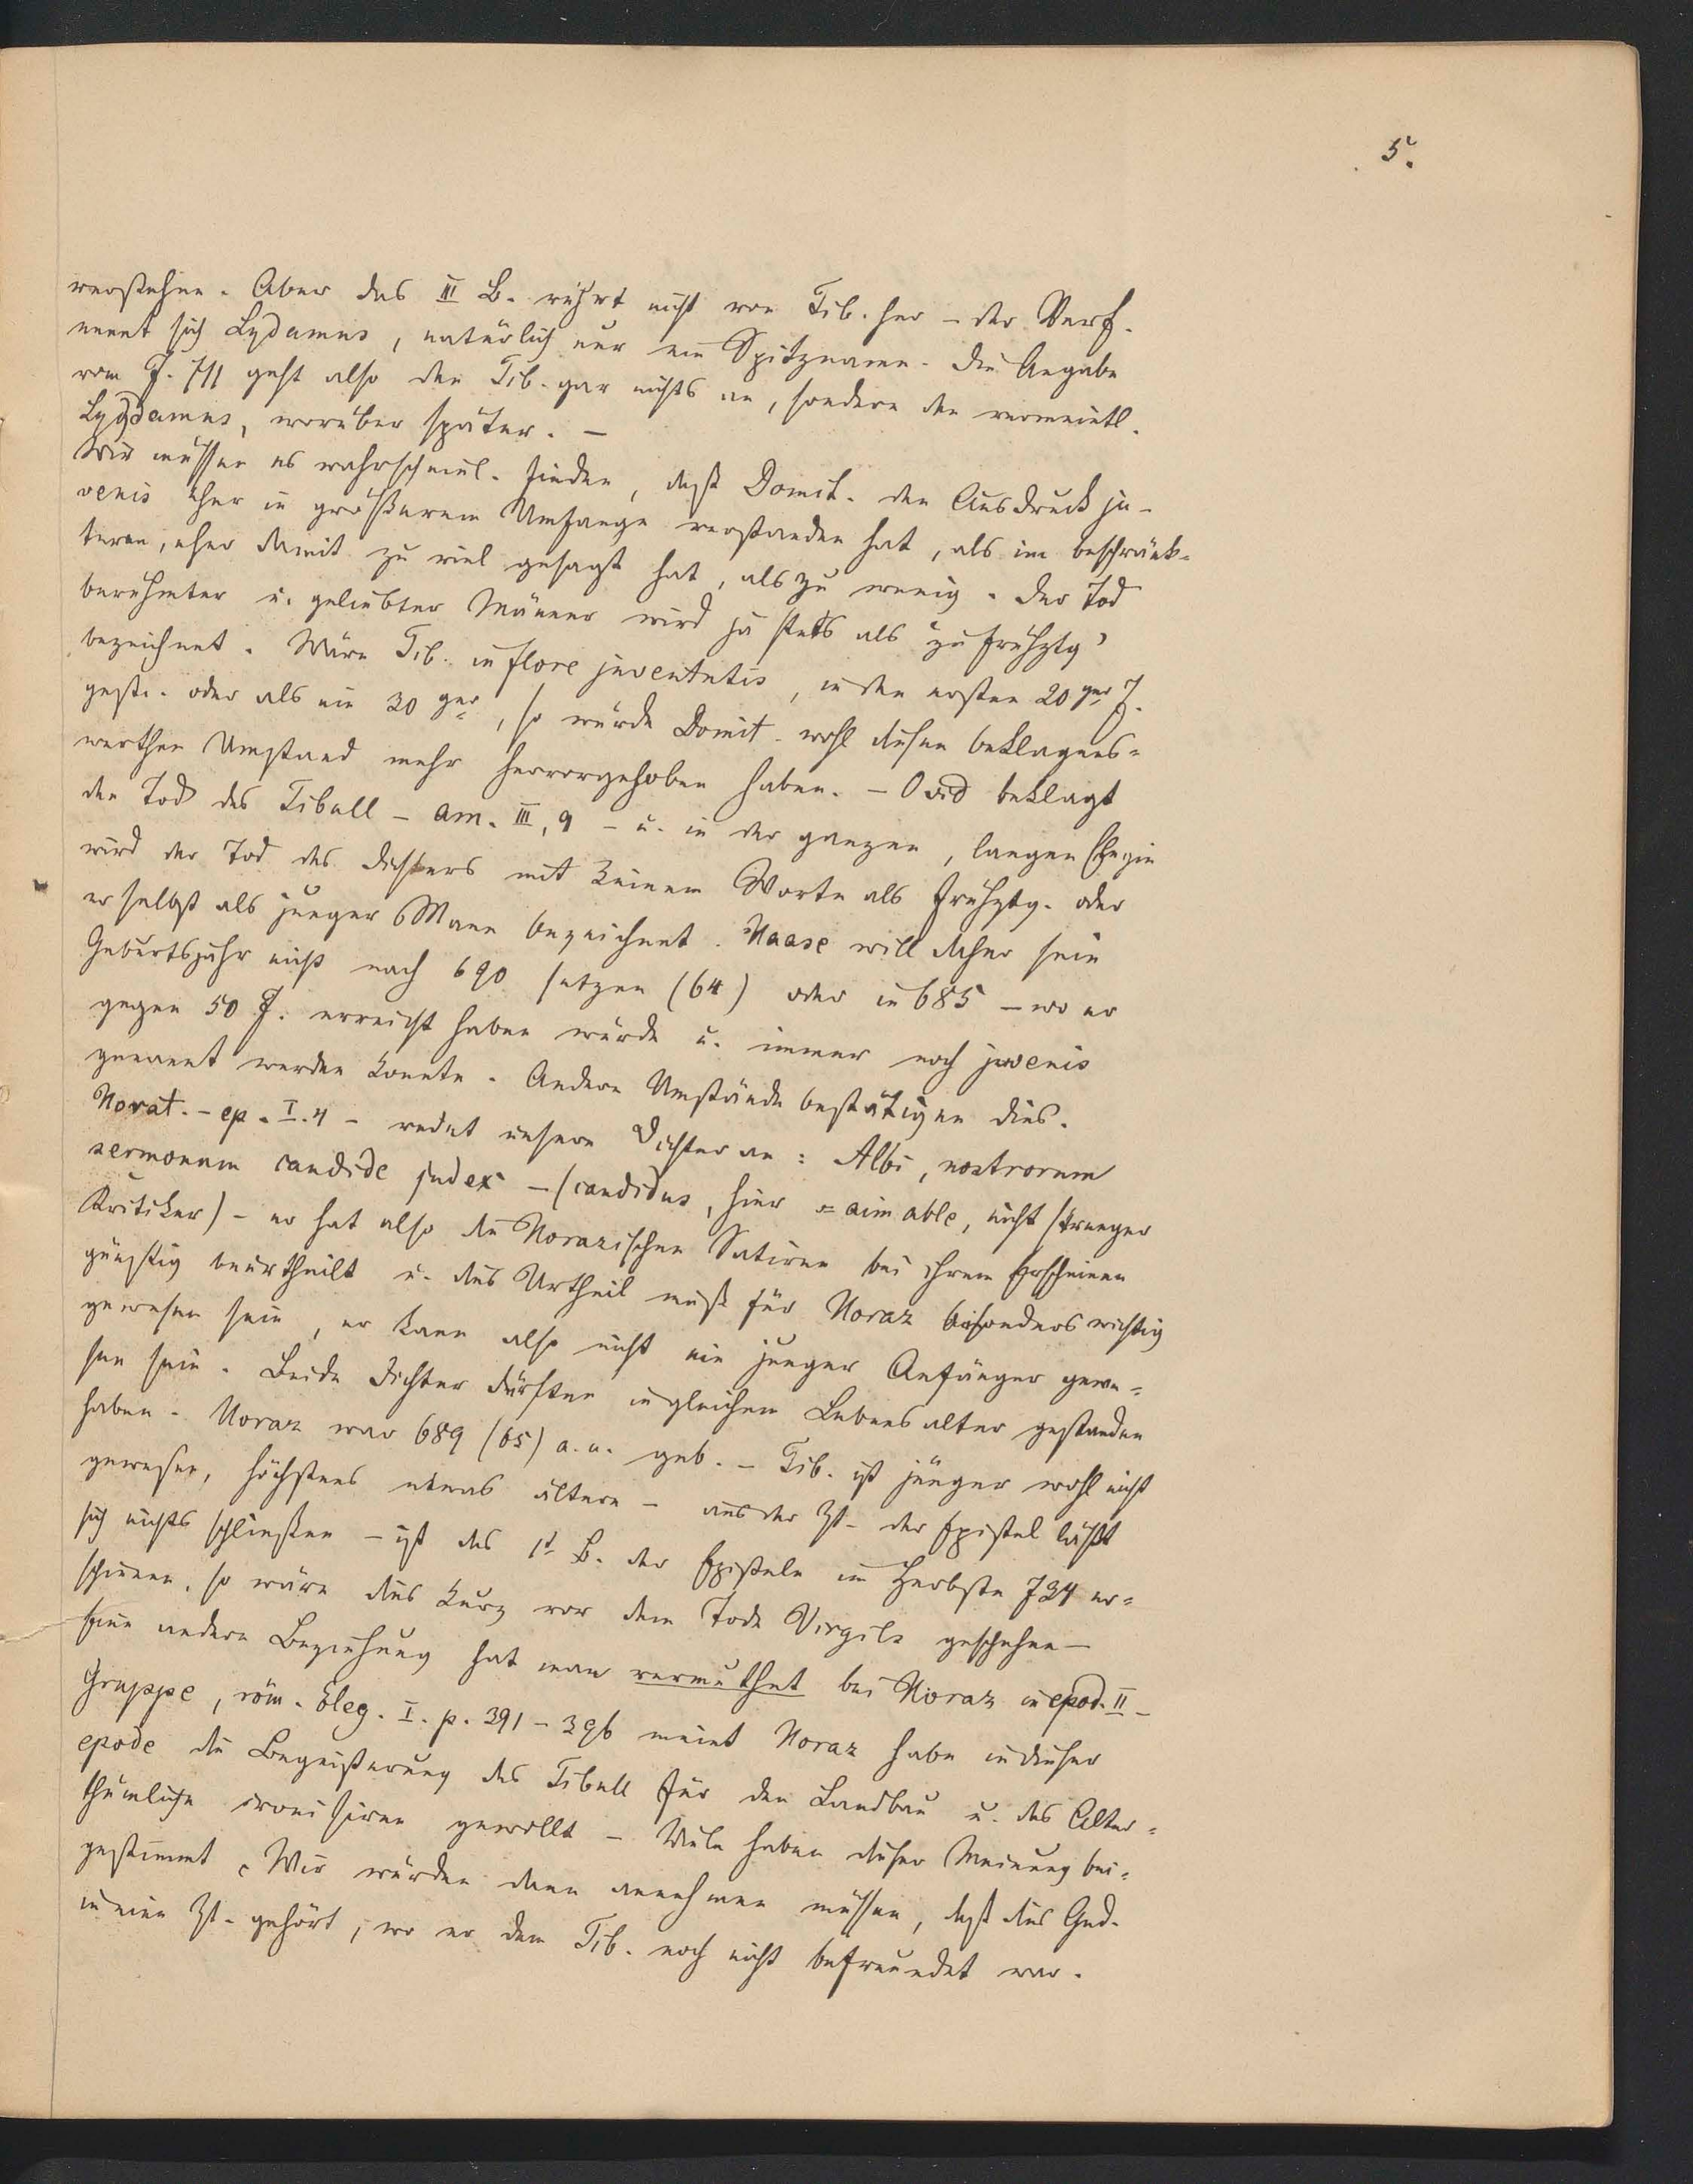 5.
verstehen. Aber das III B. rührt nicht von Tib. her – der Verf.
nennt sich Lydamus, natürlich nur ein Spitzname. Die Angabe
vom J. 711 geht also den Tib. gar nichts an, sondern den vermeintl.
Lygdamus, worüber später. –
Wir müssen es wahrscheinl. finden, daß Domit. den Ausdruck ju-
venis eher in größerem Umfange verstanden hat, als im beschränk-
teren, eher damit zu viel gesagt hat, als zu wenig. Der Tod
berühmter u. geliebter Männer wird ja stets als "zu frühztg"
bezeichnet. Wäre Tib. in flore juventutis, in den ersten 20ger J.
gest. oder als ein 30ger, so würde Domit. wohl diesen beklagens-
werthen Umstand mehr hervorgehoben haben. – Ovid beklagt
den Tod des Tibull – am. III, 9 – u. in der ganzen, langen Elegie
wird der Tod des Dichters mit keinem Worte als frühztg. oder
er selbst als junger Mann bezeichnet. Haase will daher sein
Geburtsjahr nicht nach 690 setzen (64) oder in 685 – wo er
gegen 50 J. erreicht haben würde u. immer noch juvenis
genannt werden konnte. Andere Umstände bestätigen dies.
Horat. – ep. I. 4 – redet unsern Dichter an: Albi, nostrorum
sermonum candide judex – (candidus, hier = aimable, nicht strenger
Kritiker) – er hat also die Horazischen Satiren bei ihrem Erscheinen
günstig beurtheilt u. das Urtheil muß für Horaz besonders wichtig
gewesen sein, er kann also nicht ein junger Anfänger gewe-
sen sein. Beide Dichter dürften in gleichem Lebensalter gestanden
haben. Horaz war 689 (65) a. u. geb. – Tib. ist jünger wohl nicht
gewesen, höchstens etwas älter – aus der Zt. der Epistel läßt
sich nichts schließen – ist das 1t B. der Episteln im Herbste 734 er-
schienen, so wäre dies kurz vor dem Tode Virgils geschehen –
Eine andere Beziehung hat man vermuthet bei Horaz in epod. II –
Gruppe, röm. Eleg. I. p. 391 – 396 meint Horaz habe in dieser
epode die Begeisterung des Tibull für den Landbau u. das Alter-
thümliche ironisiren gewollt – Viele haben dieser Meinung bei-
gestimmt. Wir würden dann annehmen müssen, daß das Ged.
in eine Zt. gehört, wo er dem Tib. noch nicht befreundet war.